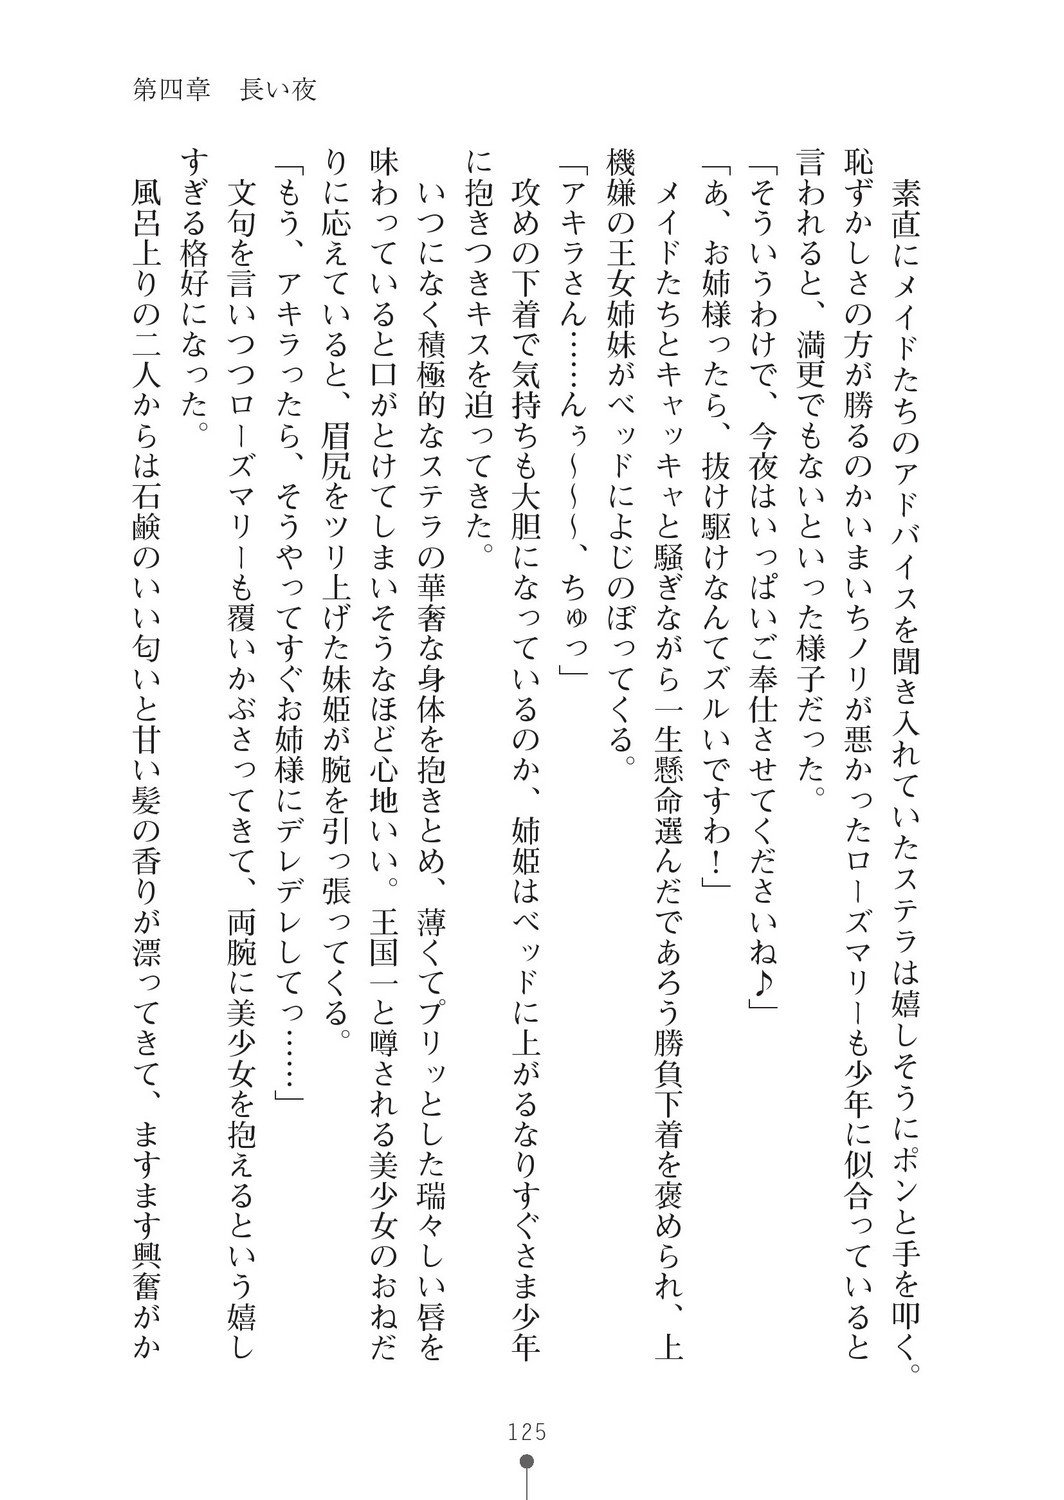 第四章　長い夜
素直にメイドたちのアドバイスを聞き入れていたステラは嬉しそうにポンと手を叩く。
恥ずかしさの方が勝るのかいまいちノリが悪かったローズマリーも少年に似合っていると
言われると、満更でもないといった様子だった。
「そういうわけで、今夜はいっぱいご奉仕させてくださいね♪」
「あ、お姉様ったら、抜け駆けなんてズルいですわ！」
メイドたちとキャッキャと騒ぎながら一生懸命選んだであろう勝負下着を褒められ、上
機嫌の王女姉妹がベッドによじのぼってくる。
「アキラさん……んぅ～～～、ちゅっ」
攻めの下着で気持ちも大胆になっているのか、姉姫はベッドに上がるなりすぐさま少年
に抱きつきキスを迫ってきた。
いつになく積極的なステラの華奢な身体を抱きとめ、薄くてプリッとした瑞々しい唇を
味わっていると口がとけてしまいそうなほど心地いい。王国一と噂される美少女のおねだ
りに応えていると、眉尻をツリ上げた妹姫が腕を引っ張ってくる。
「もう、アキラったら、そうやってすぐお姉様にデレデレしてっ……」
文句を言いつつローズマリーも覆いかぶさってきて、両腕に美少女を抱えるという嬉し
すぎる格好になった。
風呂上りの二人からは石鹸のいい匂いと甘い髪の香りが漂ってきて、ますます興奮がか
125